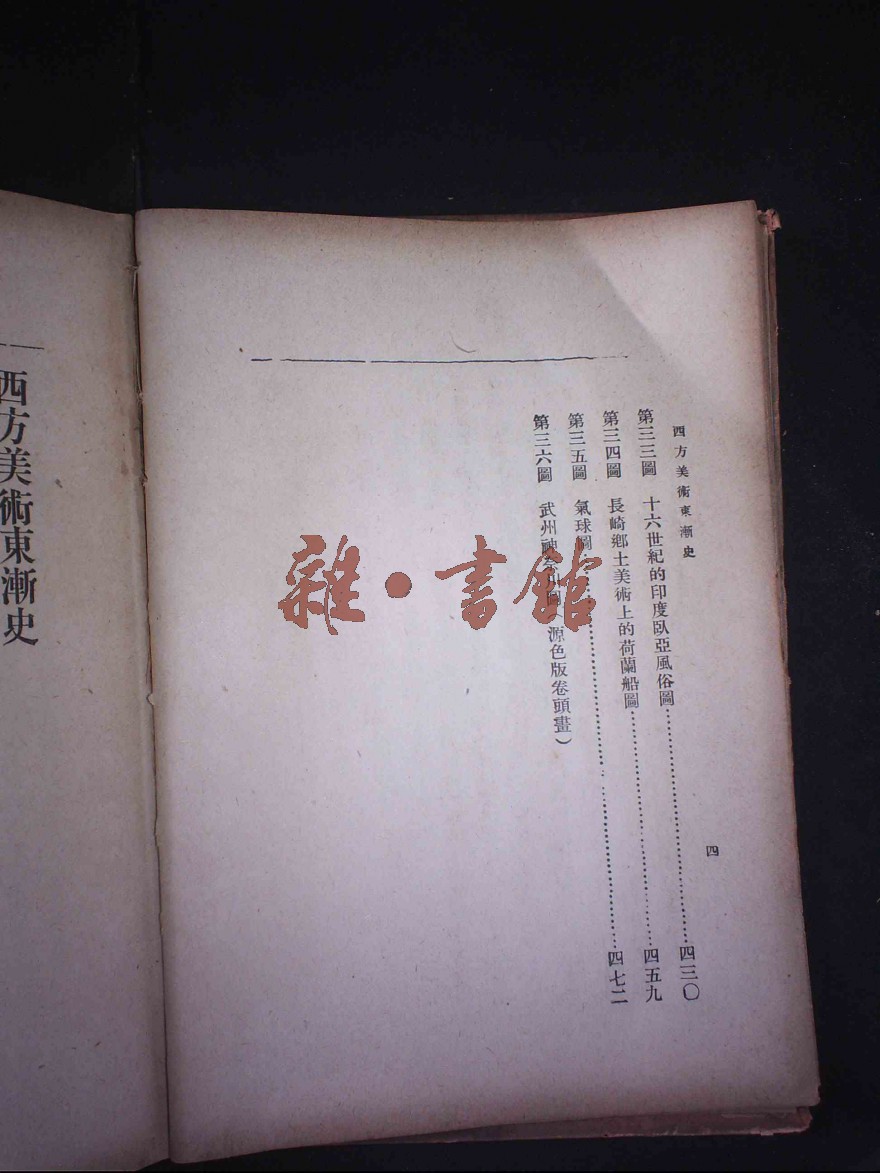 西方美術東漸史
四
第三三圖 十六世紀的印度臥亞風俗圖……四三〇
第三四圖 長崎鄉土美術上的荷蘭船圖……四五九
第三五圖 氣球圖……四七二
第三六圖 武州神奈川圖（源色版卷頭畫）
西方美術東漸史
雜·書館